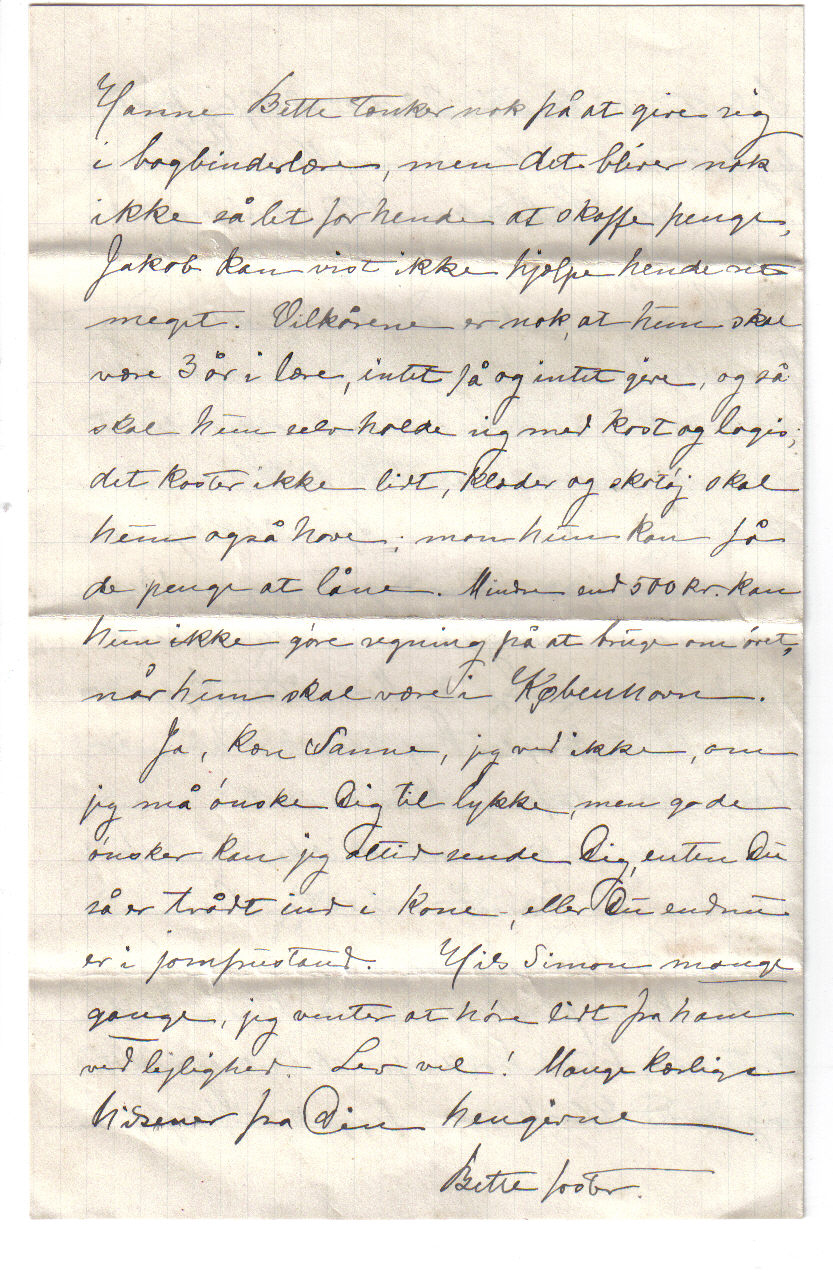 Hanne Bette tænker nok på at give sig
i bogbinderlære, men det bliver nok
ikke så let for hende at skaffe penge,
Jakob kan vist ikke hjælpe hende ret
meget. Vilkårene er nok, at hun skal
være 3 år i lære, intet få og intet give, og så
skal hun selv holde sig med kost og logis;
det koster ikke lidt, klæder og skotøj skal
hun også have; mon hun kan få
de penge at låne. Mindre end 500 kr. kan
hun ikke göre regning på at bruge om året,
når hun skal være i København.
Ja, kære Sanne, jeg ved ikke, om
jeg må önske Dig til lykke, men gode
önsker kan jeg altid sende Dig, enten Du
så er trådt ind i kone-, eller Du endnu
er i jomfrustand. Hils Simon mange
gange, jeg venter at höre lidt fra ham
ved lejlighed. Lev vel! Mange kærlige
hilsener fra Din hengivne
Bette